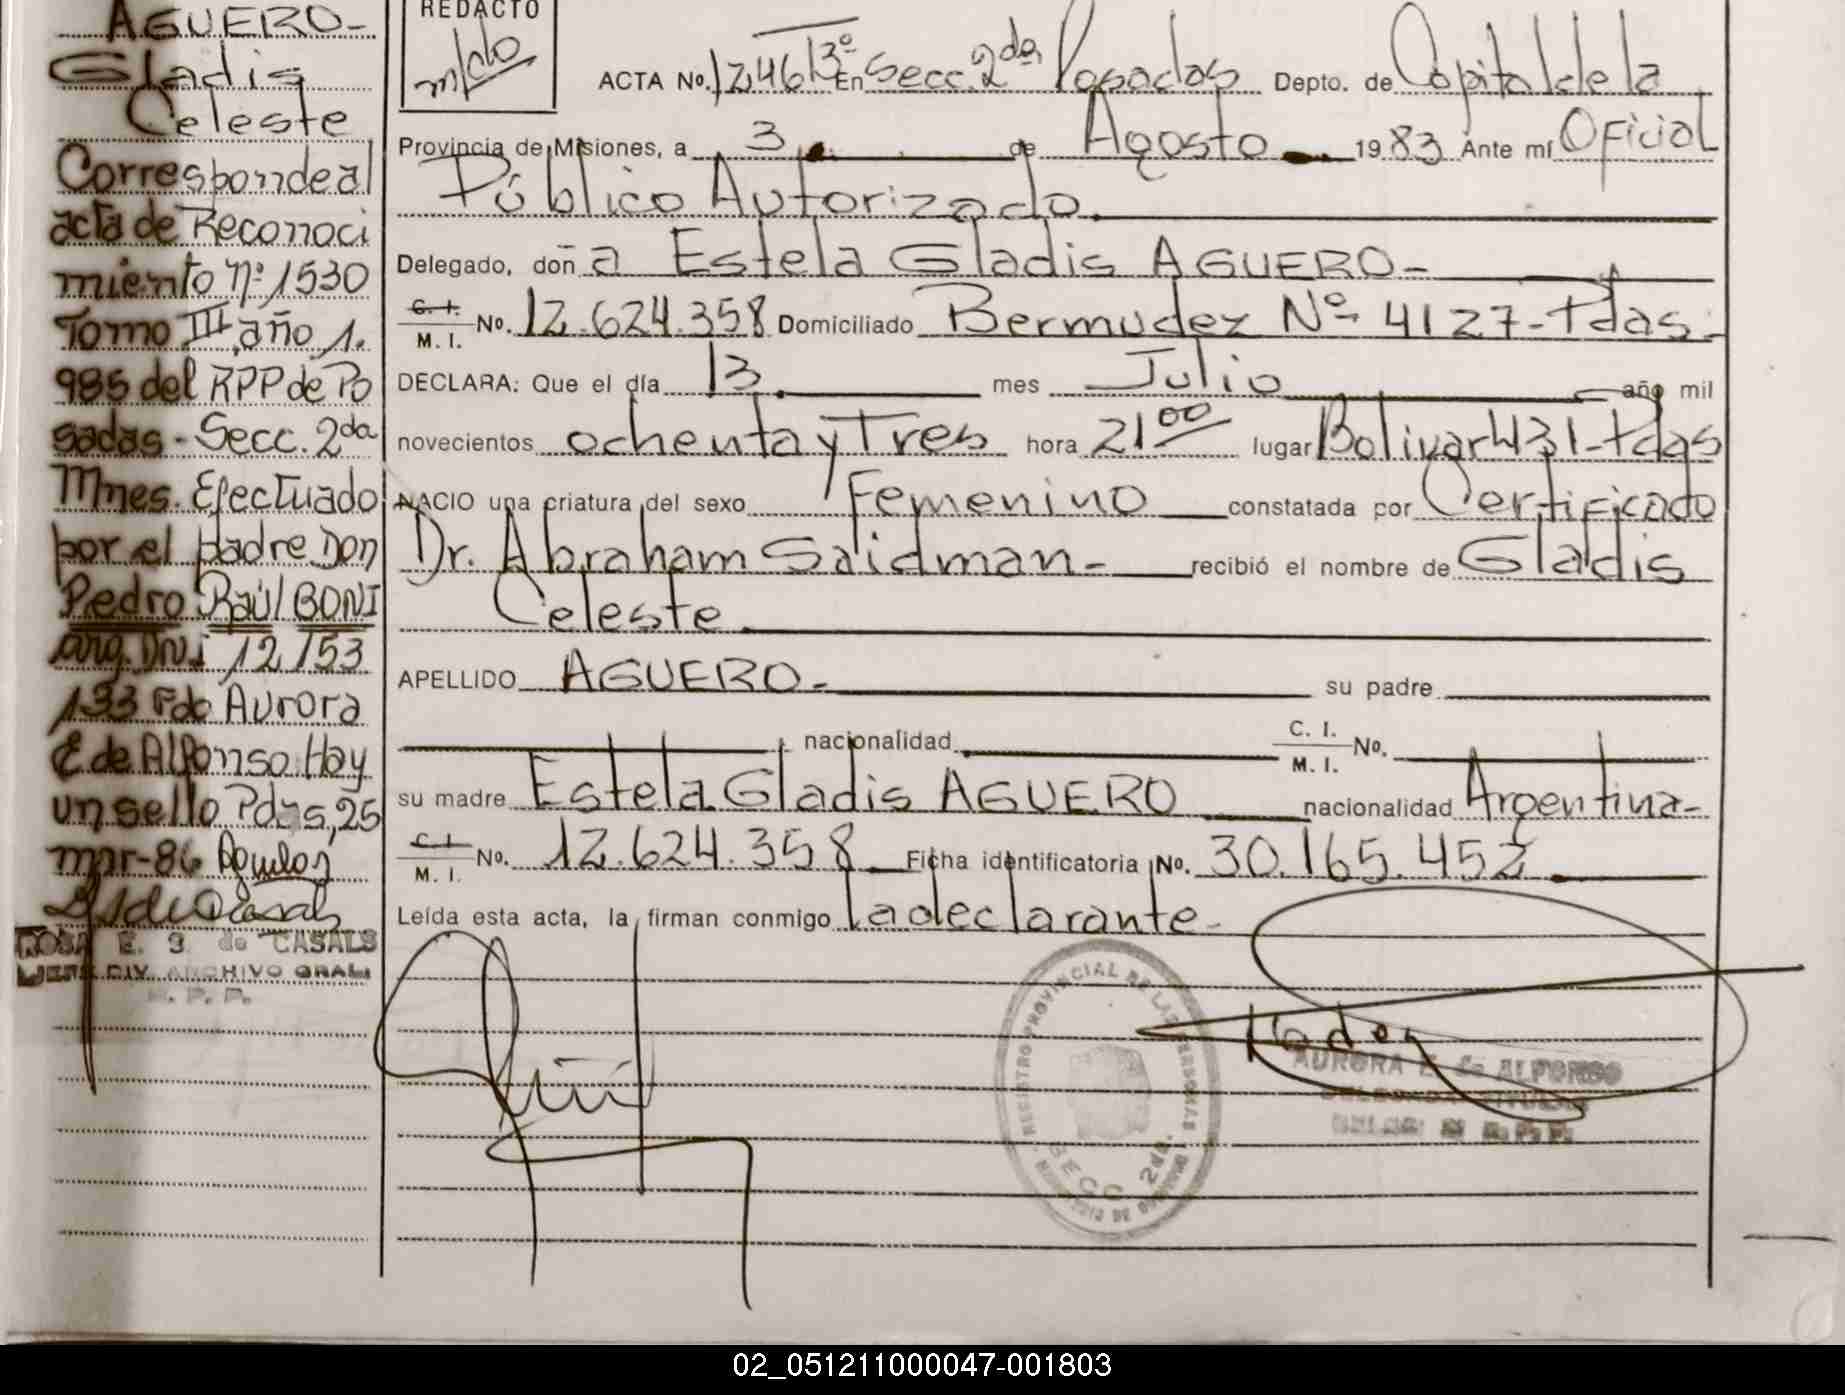 AGUERO-
Gladis
Celeste
Corresponde al
acta de Reconoci
miento Nº 1530
Tomo III, año 1.
985 del RPP de Po
sadas - Secc. 2da
Mnes. Efectuado
por el padre Don
Pedro Raúl BONI
arg. DNI 12 153
133 Fdo Aurora
E de Alfonso Hay
un sello Pdas, 25
mar-86
ROSA E. S. de CASALS
JEFE DIV. ARCHIVO GRAL.
R. P. P.
REDACTO
ACTA No. 1246 Tº 3º En Secc. 2da Posadas Depto. de Capital de la
Provincia de Misiones, a 3 de Agosto 1983 Ante mí Oficial
Público Autorizado.
Delegado, doña Estela Gladis AGUERO-
C. I.
M. I. No. 12.624.358 Domiciliado Bermudez Nº 4127-Pdas-
DECLARA: Que el día 13 mes Julio año mil
novecientos ochenta y Tres hora 21 00 lugar Bolivar 431-Pdas
NACIO una criatura del sexo Femenino constatada por Certificado
Dr. Abraham Saidman- recibió el nombre de Gladis
Celeste
APELLIDO AGUERO- su padre
nacionalidad C. I.
M. I. No.
su madre Estela Gladis AGUERO nacionalidad Argentina-
C. I.
M. I. No. 12.624.358 Ficha identificatoria No. 30.165.452
Leída esta acta, la firman conmigo la declarante-
REGISTRO PROVINCIAL DE LAS PERSONAS
SECC. 2da.
AURORA E. de ALFONSO
02_051211000047-001803